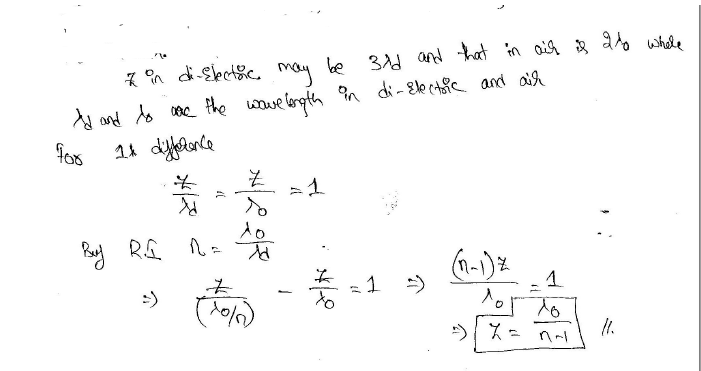 Z in di-Electric may be 3λd and that in air is 2λo where
λd and λo are the wavelength in di-electric and air
For 1λ difference
Z/λd = Z/λo = 1
By R.I n = λo/λd
=> Z/(λo/n) - Z/λo = 1 => (n-1)Z/λo = 1
=> Z = λo/n-1 //.